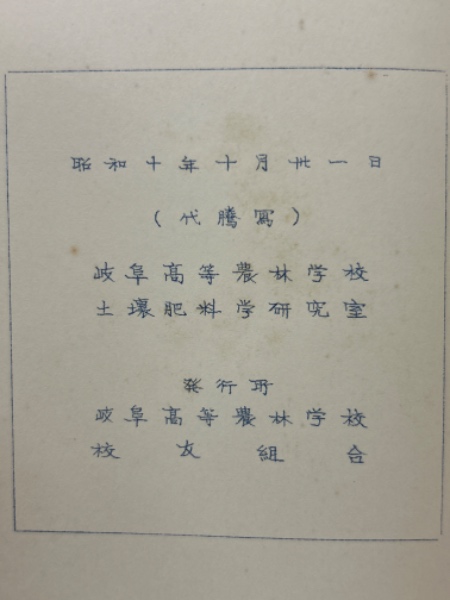 昭和十年十月卅一日
(代騰寫)
岐阜高等農林学校
土壤肥料学研究室
発行所
岐阜高等農林学校
校友組合